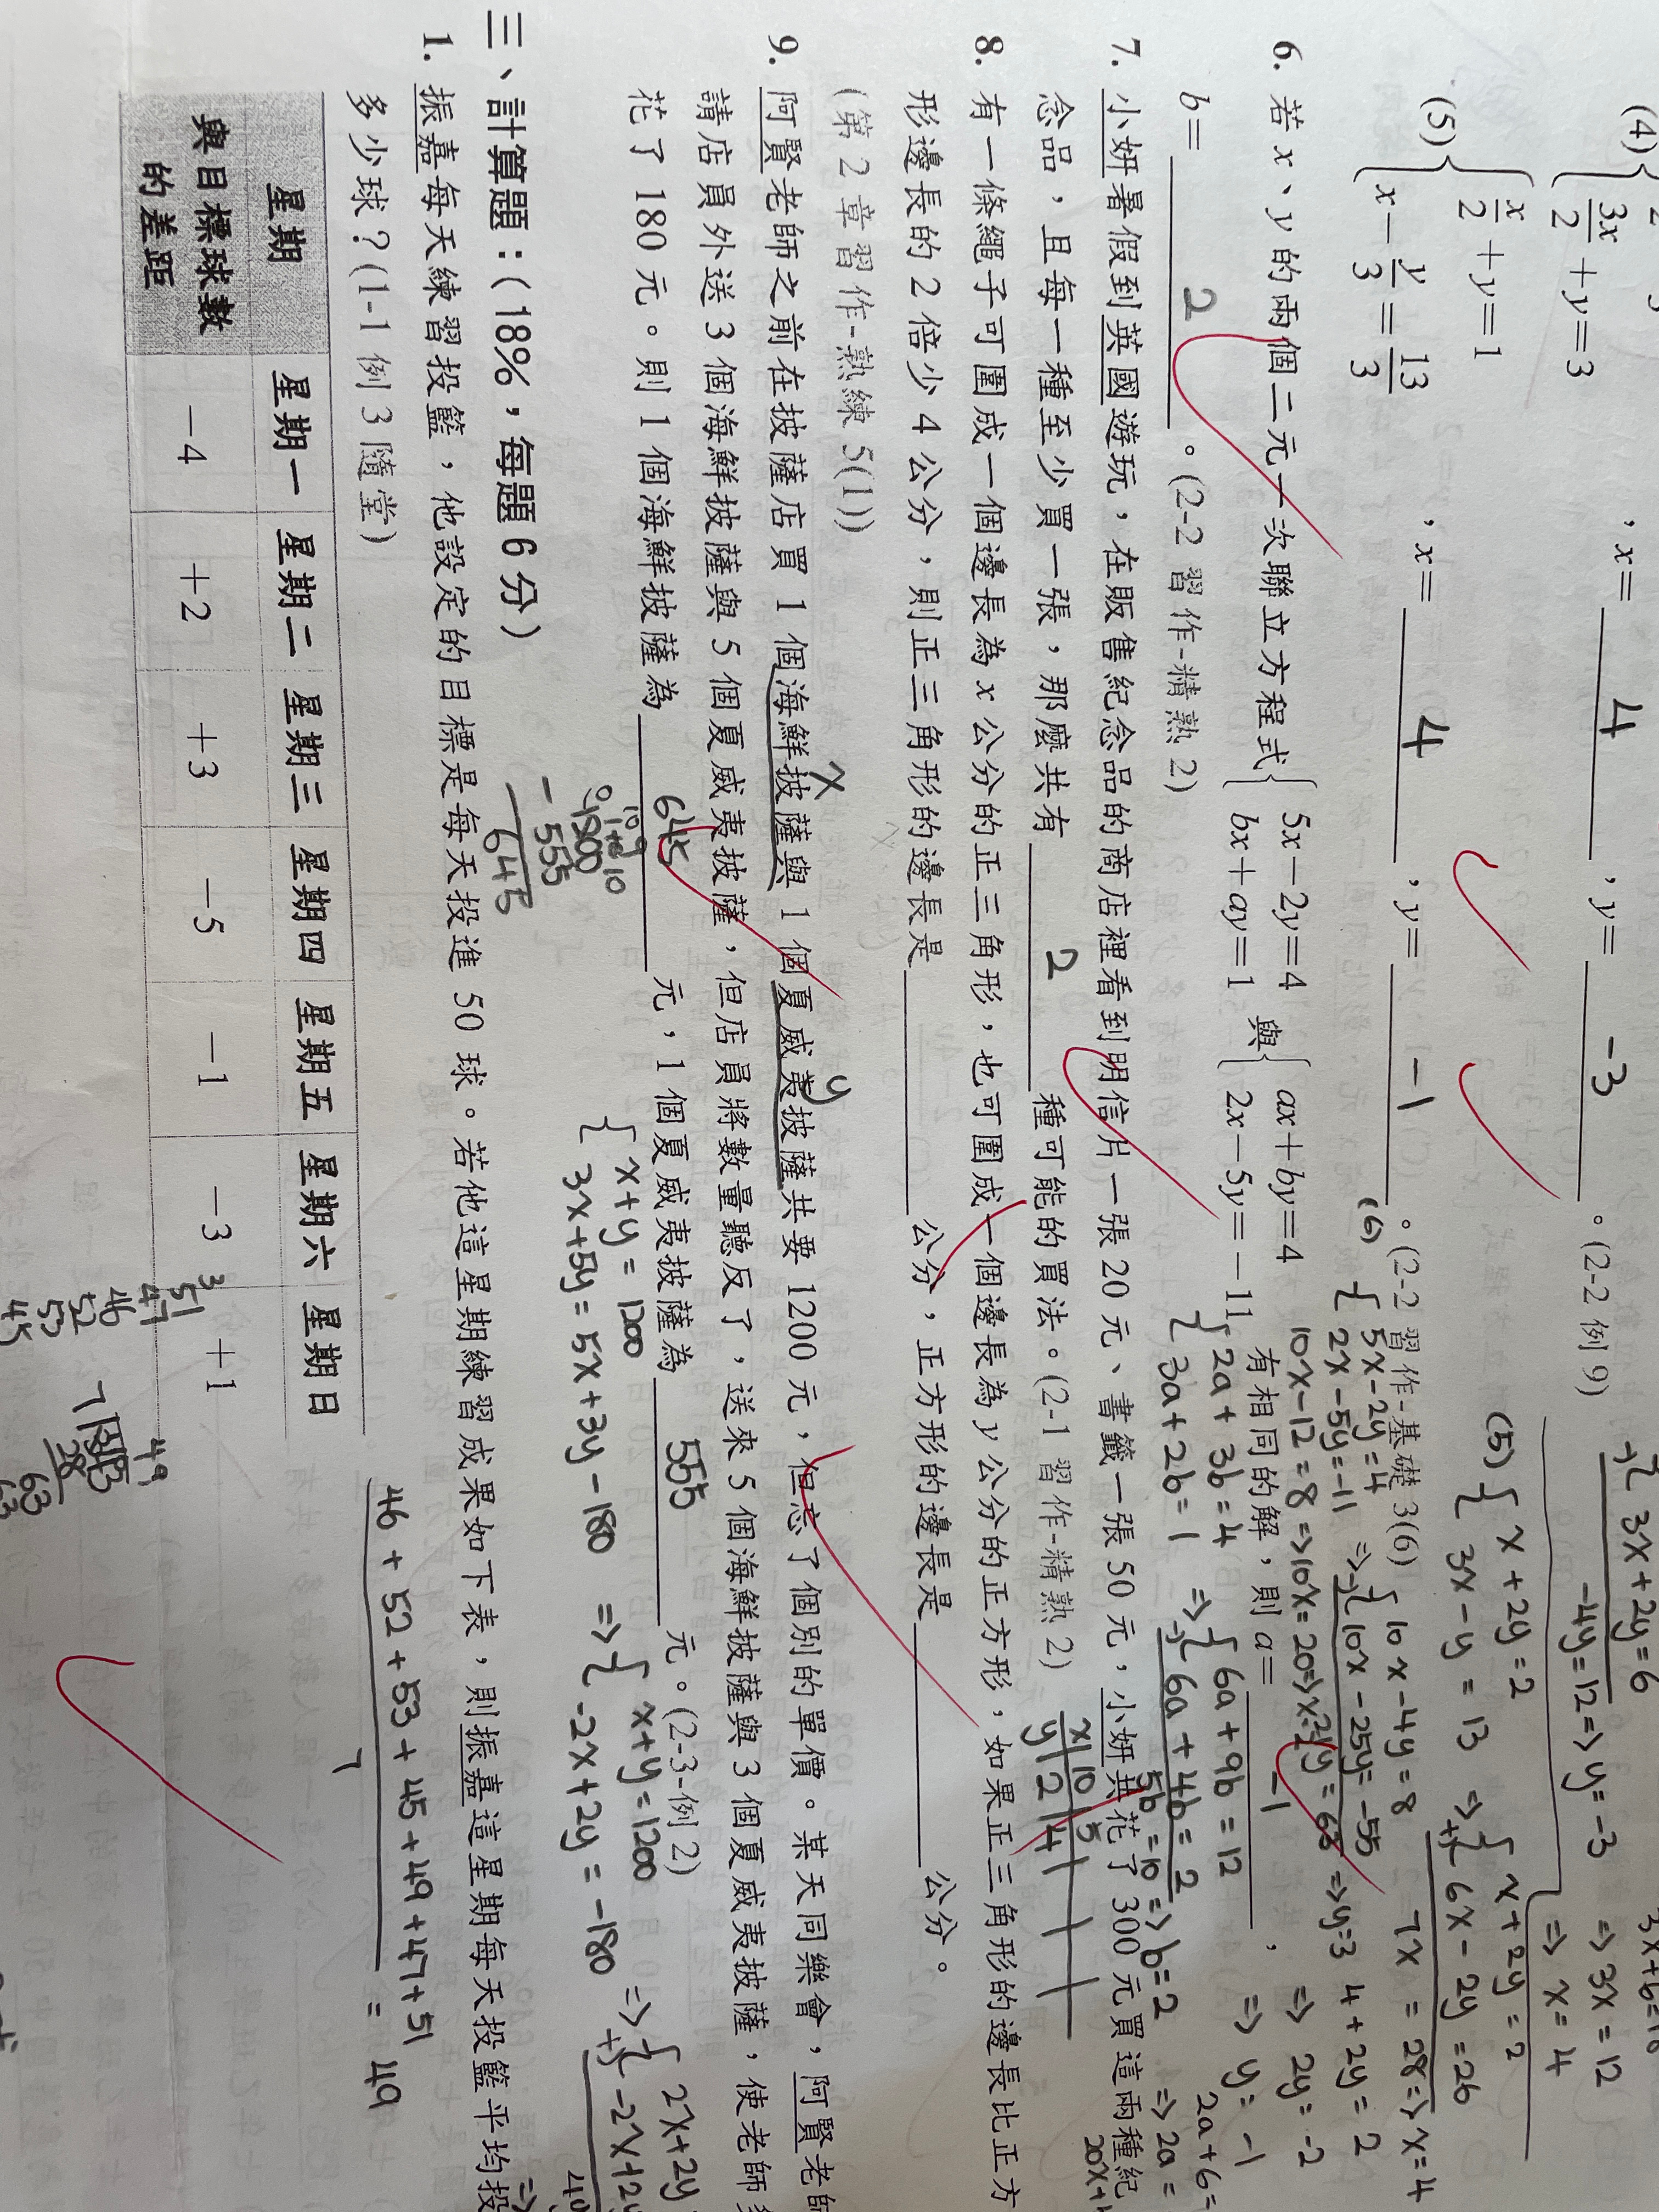 (4) { 3x/2 + y = 3 , x = 4 , y = -3 。(2-2 例 9)
(5) { x/2 + y = 1
x - y/3 = 13/3 , x = 4 , y = -1 。(2-2 習作-基礎 3(6)
6. 若 x、y 的兩個二元一次聯立方程式 { 5x-2y=4 bx+ay=1 與 { ax+by=4 2x-5y=-11 有相同的解,則 a= -1 ,
b= 2 。(2-2 習作-精熟 2)
7. 小妍暑假到英國遊玩,在販售紀念品的商店裡看到明信片一張 20 元、書籤一張 50 元,小妍共花了 300 元買這兩種紀
念品,且每一種至少買一張,那麼共有 2 種可能的買法。(2-1 習作-精熟 2)
8. 有一條繩子可圍成一個邊長為 x 公分的正三角形,也可圍成一個邊長為 y 公分的正方形,如果正三角形的邊長比正方
形邊長的 2 倍少 4 公分,則正三角形的邊長是 公分,正方形的邊長是 公分。
(第 2 章習作-熟練 5(1))
9. 阿賢老師之前在披薩店買 1 個海鮮披薩與 1 個夏威夷披薩共要 1200 元,但忘了個別的單價。某天同樂會,阿賢老師
請店員外送 3 個海鮮披薩與 5 個夏威夷披薩,但店員將數量聽反了,送來 5 個海鮮披薩與 3 個夏威夷披薩,使老師
花了 180 元。則 1 個海鮮披薩為 645 元,1 個夏威夷披薩為 555 元。(2-3-例 2)
三、計算題:(18%,每題 6 分)
1. 振嘉每天練習投籃,他設定的目標是每天投進 50 球。若他這星期練習成果如下表,則振嘉這星期每天投籃平均投
多少球?(1-1 例 3 隨堂)
星期 星期一 星期二 星期三 星期四 星期五 星期六 星期日
與目標球數的差距 -4 +2 +3 -5 -1 -3 +1
3x+2y=6
-4y=12 => y=-3 => 3x=12
=> x=4
(5) { x+2y=2 3x-y=13 => { x+2y=2 6x-2y=26
7x=28 => x=4
4+2y=2
=> 2y=-2
=> y=-1
(6) { 5x-2y=4 2x-5y=-11 => { 10x-4y=8 10x-25y=-55
21y=63 => y=3
10x-12=8 => 10x=20 => x=2
{ 2a+3b=4 3a+2b=1 => { 6a+9b=12 6a+4b=2
5b=10 => b=2
2a+6=
=> 2a=
x 10 5
y 2 4
x
y
1200
- 555
645
{ x+y=1200 3x+5y=5x+3y-180 => { x+y=1200 -2x+2y=-180 => { 2x+2y
46+52+53+45+49+47+51
7
= 49
51
47
46
52
53
45
49
7
28
63
63